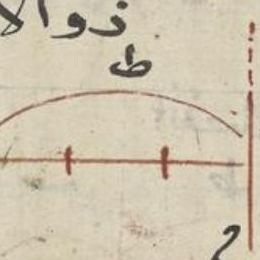 ذوالا
ط
ح